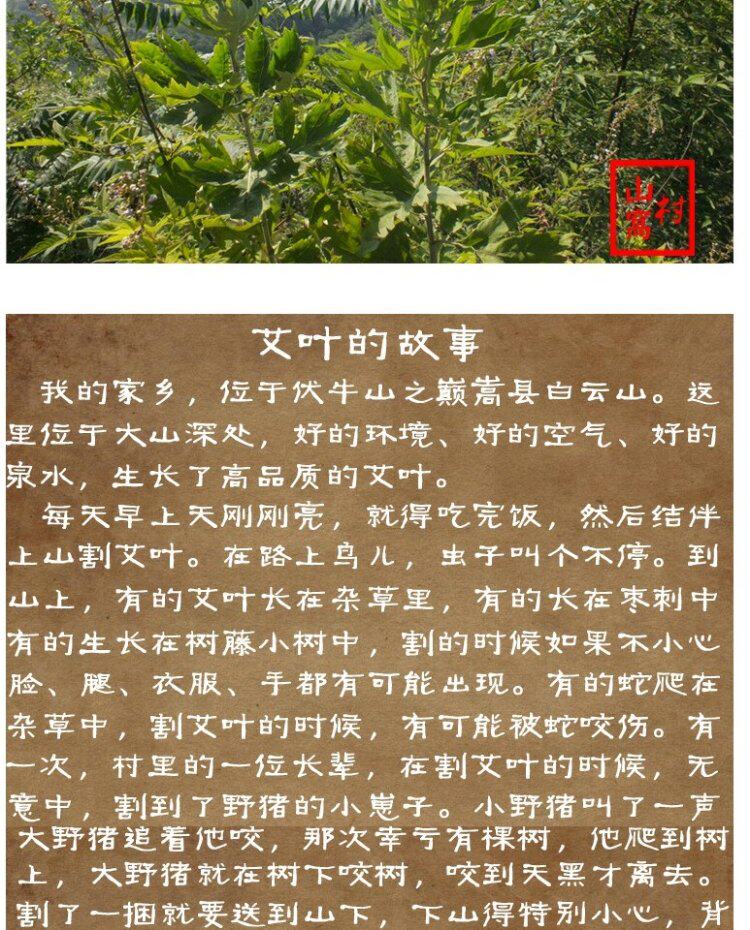 山村窝
艾叶的故事
我的家乡，位于伏牛山之巅嵩县白云山。这
里位于大山深处，好的环境、好的空气、好的
泉水，生长了高品质的艾叶。
每天早上天刚刚亮，就得吃完饭，然后结伴
上山割艾叶。在路上鸟儿，虫子叫个不停。到
山上，有的艾叶长在杂草里，有的长在枣刺中
有的生长在树藤小树中，割的时候如果不小心
脸、腿、衣服、手都有可能出现。有的蛇爬在
杂草中，割艾叶的时候，有可能被蛇咬伤。有
一次，村里的一位长辈，在割艾叶的时候，无
意中，割到了野猪的小崽子。小野猪叫了一声
大野猪追着他咬，那次幸亏有棵树，他爬到树
上，大野猪就在树下咬树，咬到天黑才离去。
割了一捆就要送到山下，下山得特别小心，背